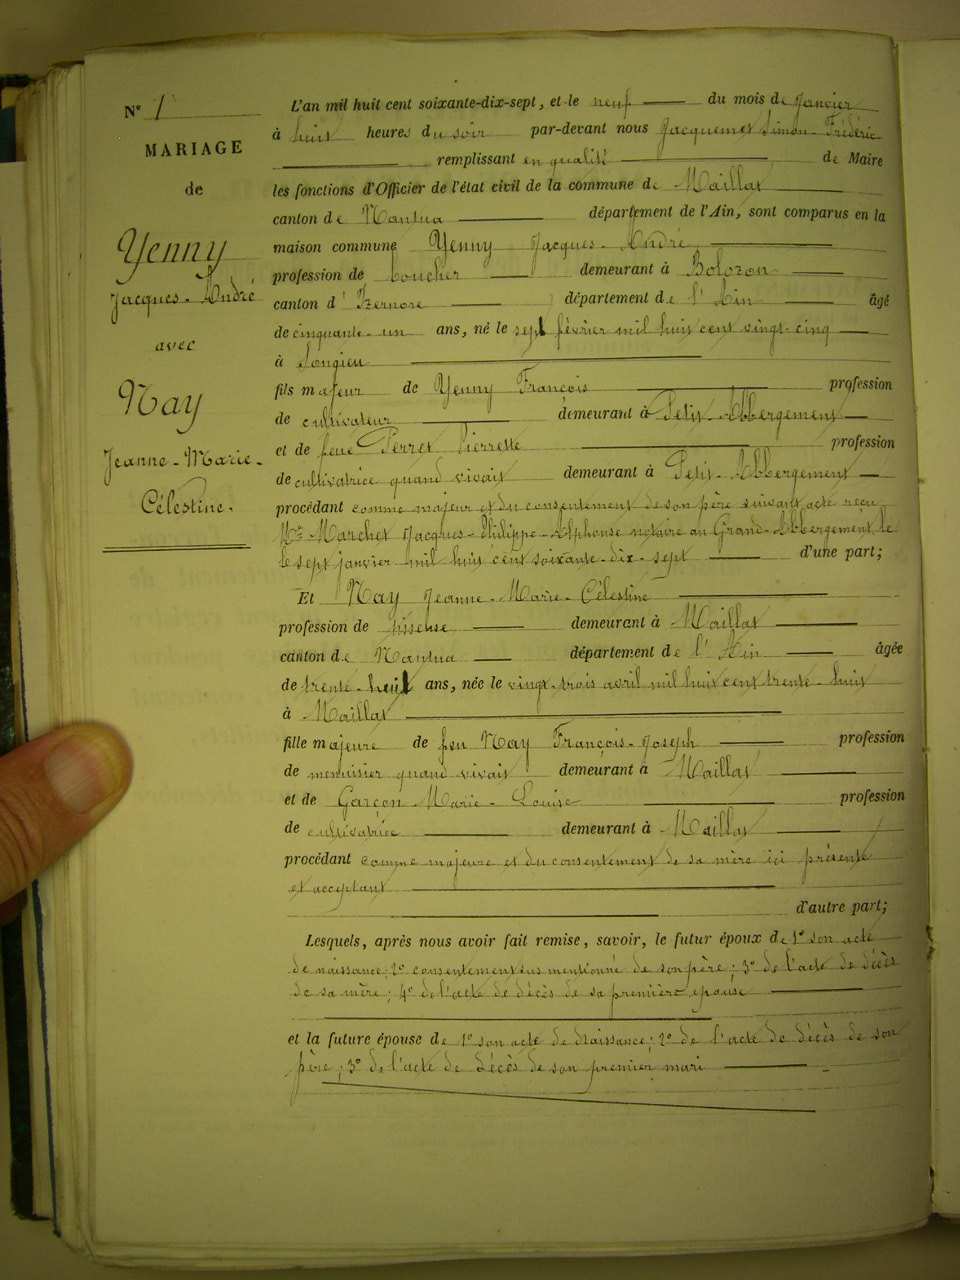 N° 1
MARIAGE
de
Yenny
Jacques-André
avec
Nay
Jeanne-Marie-
Célestine.
L'an mil huit cent soixante-dix-sept, et le neuf du mois de Janvier
à huit heures du soir par-devant nous Jacquemet Simon-Frédéric
remplissant en qualité de Maire
les fonctions d'Officier de l'état civil de la commune de Maillat
canton de Nantua département de l'Ain, sont comparus en la
maison commune Yenny Jacques-André
profession de boucher demeurant à Bolozon
canton d'Izernore département de l'Ain âgé
de cinquante-un ans, né le sept février mil huit cent vingt-cinq
à Songieu
fils majeur de Yenny François profession
de cultivateur demeurant à Petit-Abbergement
et de feue Perret Pierrette profession
de cultivatrice quand vivait demeurant à Petit-Abbergement
procédant comme majeur et du consentement de son père suivant acte reçu
Me Marchet Jacques-Philippe-Alphonse notaire au Grand-Abbergement, le
le sept janvier mil huit cent soixante-dix-sept d'une part;
Et Nay Jeanne-Marie-Célestine
profession de tisseuse demeurant à Maillat
canton de Nantua département de l'Ain âgée
de trente-huit ans, née le vingt-trois avril mil huit cent trente-huit
à Maillat
fille majeure de feu Nay François-Joseph profession
de menuisier quand vivait demeurant à Maillat
et de Garçon Marie-Louise profession
de cultivatrice demeurant à Maillat
procédant comme majeure et du consentement de sa mère ici présente
et acceptant
d'autre part;
Lesquels, après nous avoir fait remise, savoir, le futur époux de 1° son acte
de naissance; 2° consentement sus mentionné de son père; 3° de l'acte de décès
de sa mère; 4° de l'acte de décès de sa première épouse
et la future épouse de 1° son acte de naissance; 2° de l'acte de décès de son
père; 3° de l'acte de décès de son premier mari